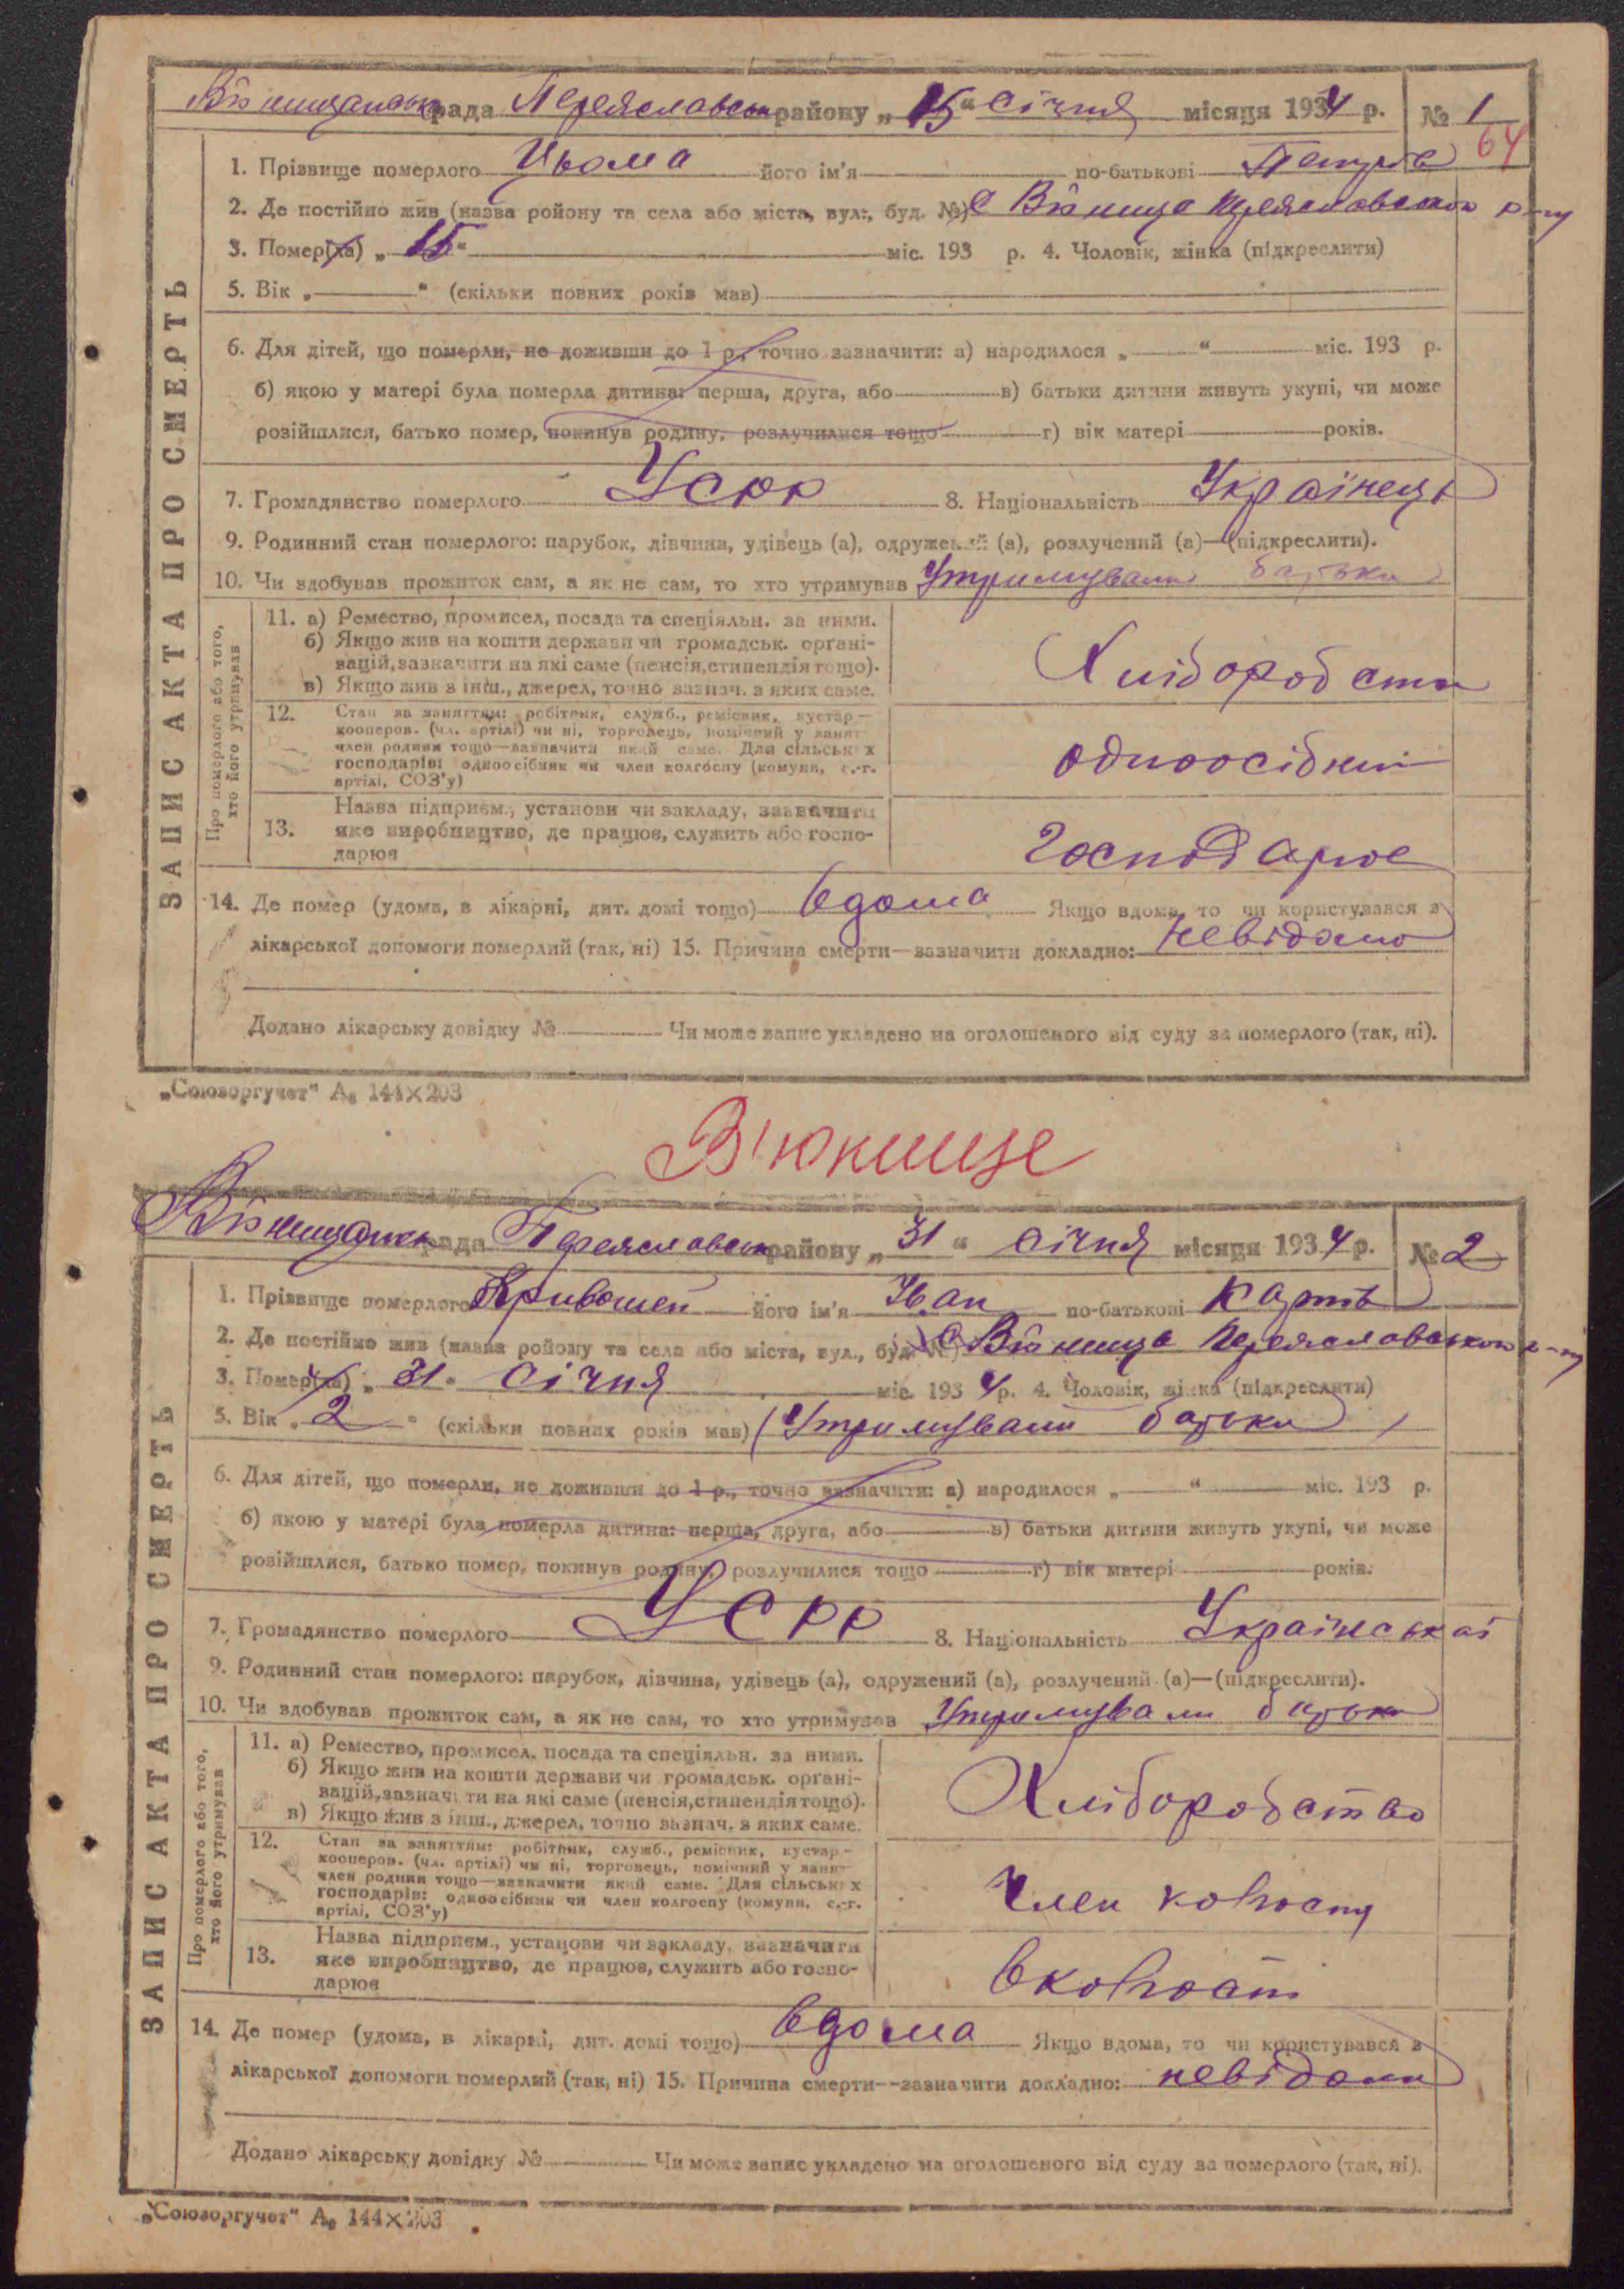 Вʼюнищанська рада Переяславськ району „15“ січня місяця 1934 р. № 1
64
1. Прізвище померлого Цьома його ім'я по-батькові Петрів
2. Де постійно жив (назва ройону та села або міста, вул., буд. №) с Вʼюнище Переяславського р-ну
3. Помер(ха) „15“ міс. 193 р. 4. Чоловік, жінка (підкреслити)
5. Вік „ “ (скільки повних років мав)
6. Для дітей, що померли, не доживши до 1 р., точно зазначити: а) народилося „ “ міс. 193 р.
б) якою у матері була померла дитина: перша, друга, або в) батьки дитини живуть укупі, чи може
розійшлися, батько помер, покинув родину, розлучилися тощо г) вік матері років.
7. Громадянство померлого УСРР 8. Національність Українець
9. Родинний стан померлого: парубок, дівчина, удівець (а), одружений (а), розлучений (а)—(підкреслити).
10. Чи здобував прожиток сам, а як не сам, то хто утримував Утримували батьки
ЗАПИС АКТА ПРО СМЕРТЬ
Про померлого або того,
хто його утримував
11. а) Ремество, промисел, посада та спеціяльн. за ними.
б) Якщо жив на кошти держави чи громадськ. орґані-
зацій, зазначити на які саме (пенсія, стипендія тощо).
в) Якщо жив з інш., джерел, точно зазнач. з яких саме.
Хліборобств
12. Стан за заняттям: робітник, служб., ремісник, кустар—
кооперов. (чл. артілі) чи ні, торговець, помічний у занят—
член родини тощо—зазначити який саме. Для сільських
господарів: одноосібник чи член колгоспу (комуни, с.-г.
артілі, СОЗ'у)
одноосібник
13. Назва підприєм., установи чи закладу, зазначити
яке виробництво, де працює, служить або госпо-
дарює
Господарює
14. Де помер (удома, в лікарні, дит. домі тощо) вдома Якщо вдома, то чи користувався з
лікарської допомоги померлий (так, ні) 15. Причина смерти—зазначити докладно: невідомо
Додано лікарську довідку № Чи може запис укладено на оголошеного від суду за померлого (так, ні).
„Союзоргучет“ А₆ 144×203
В'юнище
Вʼюнищанськ рада Переяславськ району „31“ січня місяця 1934 р. № 2
1. Прізвище померлого Кривошей його ім'я Іван по-батькові Карпів
2. Де постійно жив (назва ройону та села або міста, вул., буд. №) с Вʼюнище Переяславського р-ну
3. Помер(ха) „31“ Січня міс. 1934 р. 4. Чоловік, жінка (підкреслити)
5. Вік „2“ (скільки повних років мав) (Утримували батьки)
6. Для дітей, що померли, не доживши до 1 р., точно зазначити: а) народилося „ “ міс. 193 р.
б) якою у матері була померла дитина: перша, друга, або в) батьки дитини живуть укупі, чи може
розійшлися, батько помер, покинув родину, розлучилися тощо г) вік матері років.
7. Громадянство померлого УСРР 8. Національність Українська
9. Родинний стан померлого: парубок, дівчина, удівець (а), одружений (а), розлучений (а)—(підкреслити).
10. Чи здобував прожиток сам, а як не сам, то хто утримував Утримували батьки
ЗАПИС АКТА ПРО СМЕРТЬ
Про померлого або того,
хто його утримував
11. а) Ремество, промисел, посада та спеціяльн. за ними.
б) Якщо жив на кошти держави чи громадськ. орґані-
зацій, зазначити на які саме (пенсія, стипендія тощо).
в) Якщо жив з інш., джерел, точно зазнач. з яких саме.
Хліборобство
12. Стан за заняттям: робітник, служб., ремісник, кустар—
кооперов. (чл. артілі) чи ні, торговець, помічний у занят—
член родини тощо—зазначити який саме. Для сільських
господарів: одноосібник чи член колгоспу (комуни, с.-г.
артілі, СОЗ'у)
Член колгоспу
13. Назва підприєм., установи чи закладу, зазначити
яке виробництво, де працює, служить або госпо-
дарює
в колгоспі
14. Де помер (удома, в лікарні, дит. домі тощо) вдома Якщо вдома, то чи користувався з
лікарської допомоги померлий (так, ні) 15. Причина смерти--зазначити докладно: невідомо
Додано лікарську довідку № Чи може запис укладено на оголошеного від суду за померлого (так, ні).
„Союзоргучет“ А₆ 144×203